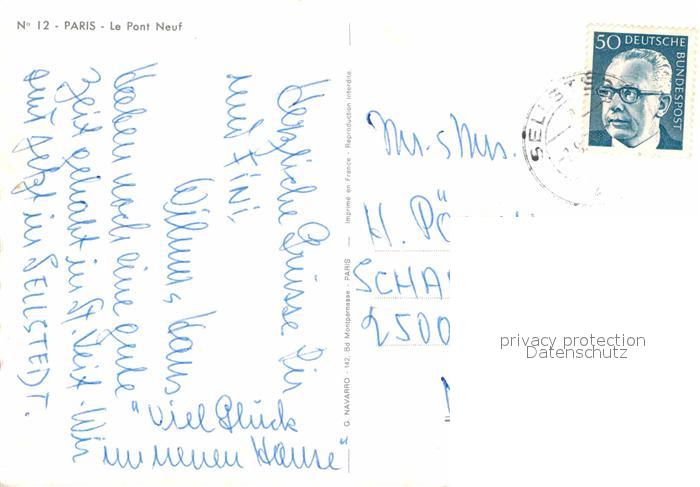 Nº 12 - PARIS - Le Pont Neuf
Herzliche Grüsse Dir
und Fini,
Wilma, Hans
Haben noch eine gute
Zeit gehabt in St. Veit. Wir
sind jetzt in SELLSTEDT.
"Viel Glück
im neuen Hause"
G. NAVARRO - 142, Bd Montparnasse - PARIS — Imprimé en France - Reproduction interdite
Mr. & Mrs.
H. PÖ
SCHA
2500
50 DEUTSCHE
BUNDESPOST
SELLST
privacy protection
Datenschutz